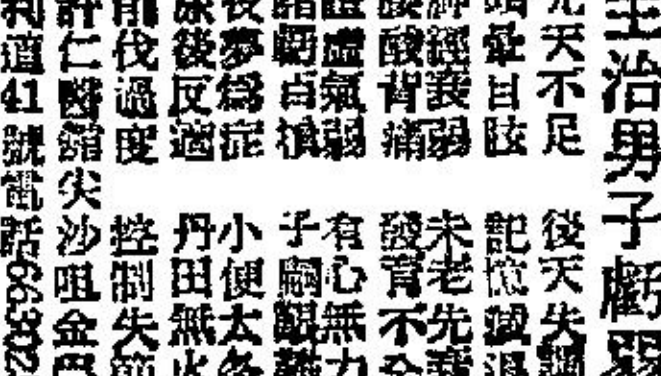 主治男子虧弱
先天不足 後天失調
頭暈目眩 記憶減退
神經衰弱 未老先衰
腰酸背痛 發育不全
體虛氣弱 有心無力
諸虧百損 子嗣艱難
夜夢為症 小便太多
後反 丹田無火
伐過度 控制失節
許仁醫館 尖沙咀金巴
利道41號電話66302